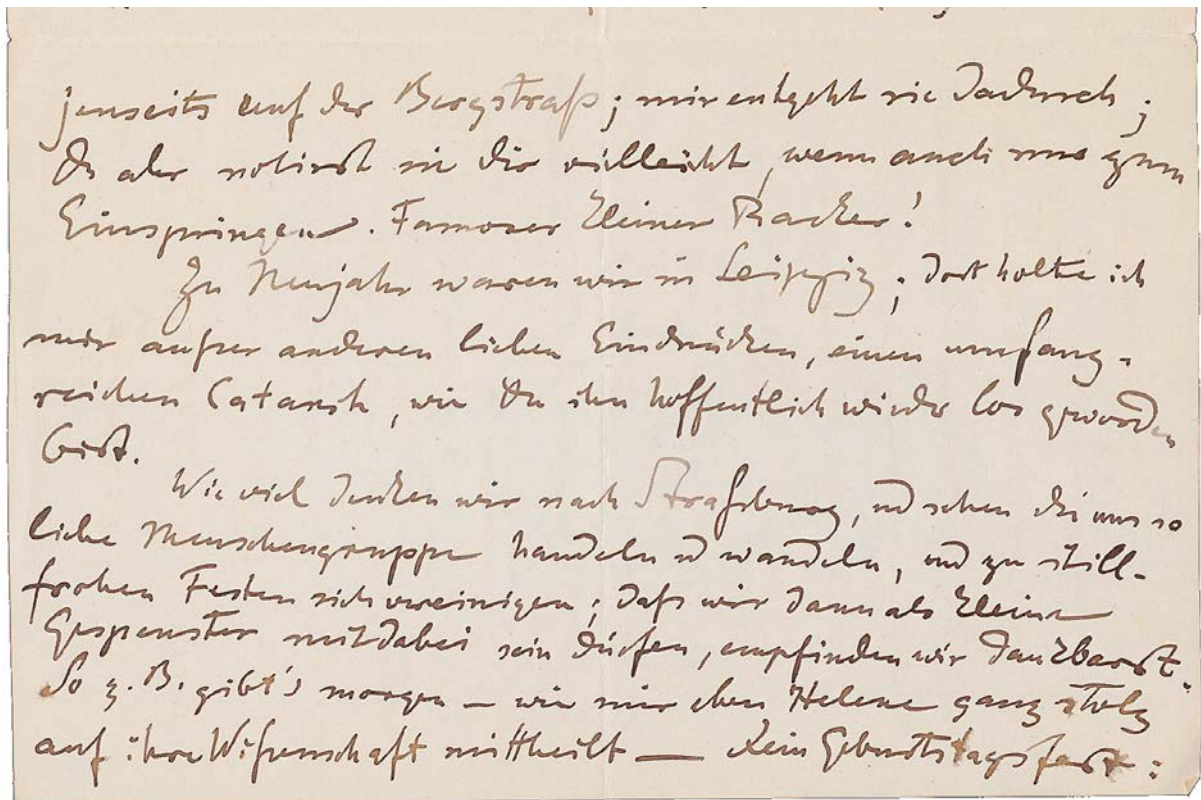 jenseits auf der Bergstraß; mir entgeht sie dadurch;
Du aber notirst sie Dir vielleicht, wenn auch nur zum
Einspringen. Famoser kleiner Racker!
Zu Neujahr waren wir in Leipzig; dort holte ich
mir außer anderen lieben Eindrücken, einen umfang-
reichen Catarrh, wie Du ihn hoffentlich wieder los geworden
bist.
Wie viel denken wir nach Straßburg, und sehen die uns so
liebe Menschengruppe handeln und wandeln, und zu still-
frohen Festen sich vereinigen; daß wir dann als kleine
Gespenster mit dabei sein dürfen, empfinden wir dankbarst.
So z. B. gibt's morgen — wie mir eben Helene ganz stolz
auf ihre Wißenschaft mittheilt — Dein Geburtstagsfest: